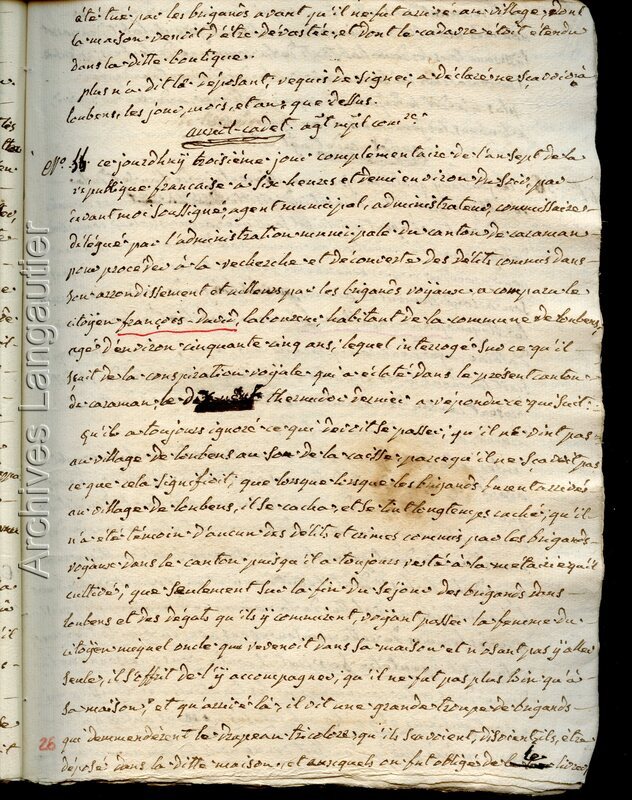 été tué par les brigands avant qu'il ne fut arrivé au village, dont
la maison venoit d'être devastée, et dont le cadavre étoit etendu
dans la ditte boutique.
plus n'a dit le déposant, requis de signer, a déclaré ne sçavoir à
loubens, les jour, mois, et an, que dessus.
cadet. agt mpal comre
N°. 56 ce jourdhuy troisiéme jour complémentaire de l'an sept de la
république française à six heures et demi environ du soir, par
devant moi soussigné, agent municipal, administrateur, commissaire
délégué par l'administration municipale du canton de caraman
pour procéder à la recherche et découverte des délits commis dans
son arrondissement et ailleurs par les brigands royaux a comparu le
citoyen françois david, laboureur, habitant de la commune de loubens,
agé d'environ cinquante cinq ans, lequel interrogé sur ce qu'il
sait de la conspiration royale qui a éclaté dans le présent canton
de caraman, le thermidor dernier a répondu ce qui suit:
qu'il a toujours ignoré ce qui devoit se passer, qu'il ne vint pas
au village de loubens au son de la caisse, parcequ'il ne sçavoit pas
ce que cela signifioit, que lorsque lorsque les brigands furent arrivés
au village de loubens, il se cacha, et se tint longtemps caché; qu'il
n'a été témoin d'aucun des délits et crimes commis par les brigands
royaux dans le canton puisqu'il a toujours resté à la metairie qu'il
cultive; que seulement sur la fin du sejour des brigands dans
loubens et des dégats qu'ils y commirent, voyant passer la femme du
citoyen oncle qui revenoit dans sa maison et n'osant pas y aller
seule, il s'offrit de l'y accompagner, qu'il ne fut pas plus loin qu'à
sa maison, et qu'arrivé là, il vit une grande troupe de brigands
qui demmandérent le drapeau tricolore qu'ils sçavoient, disoient ils, être
déposé dans la ditte maison, et auxquels on fut obligé de le livrer
26
Archives Langautier